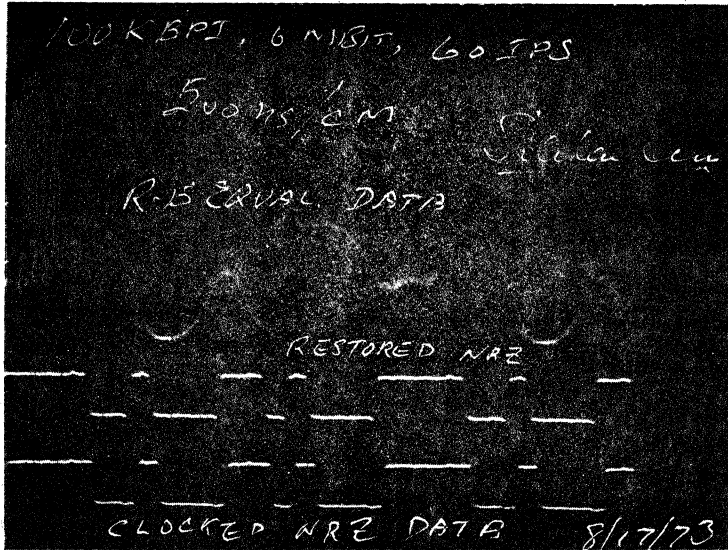 100K BPI, 6 MBIT, 60 IPS
500 ns/cM
EQUAL DATA
RESTORED NRZ
CLOCKED NRZ DATA 8/17/73